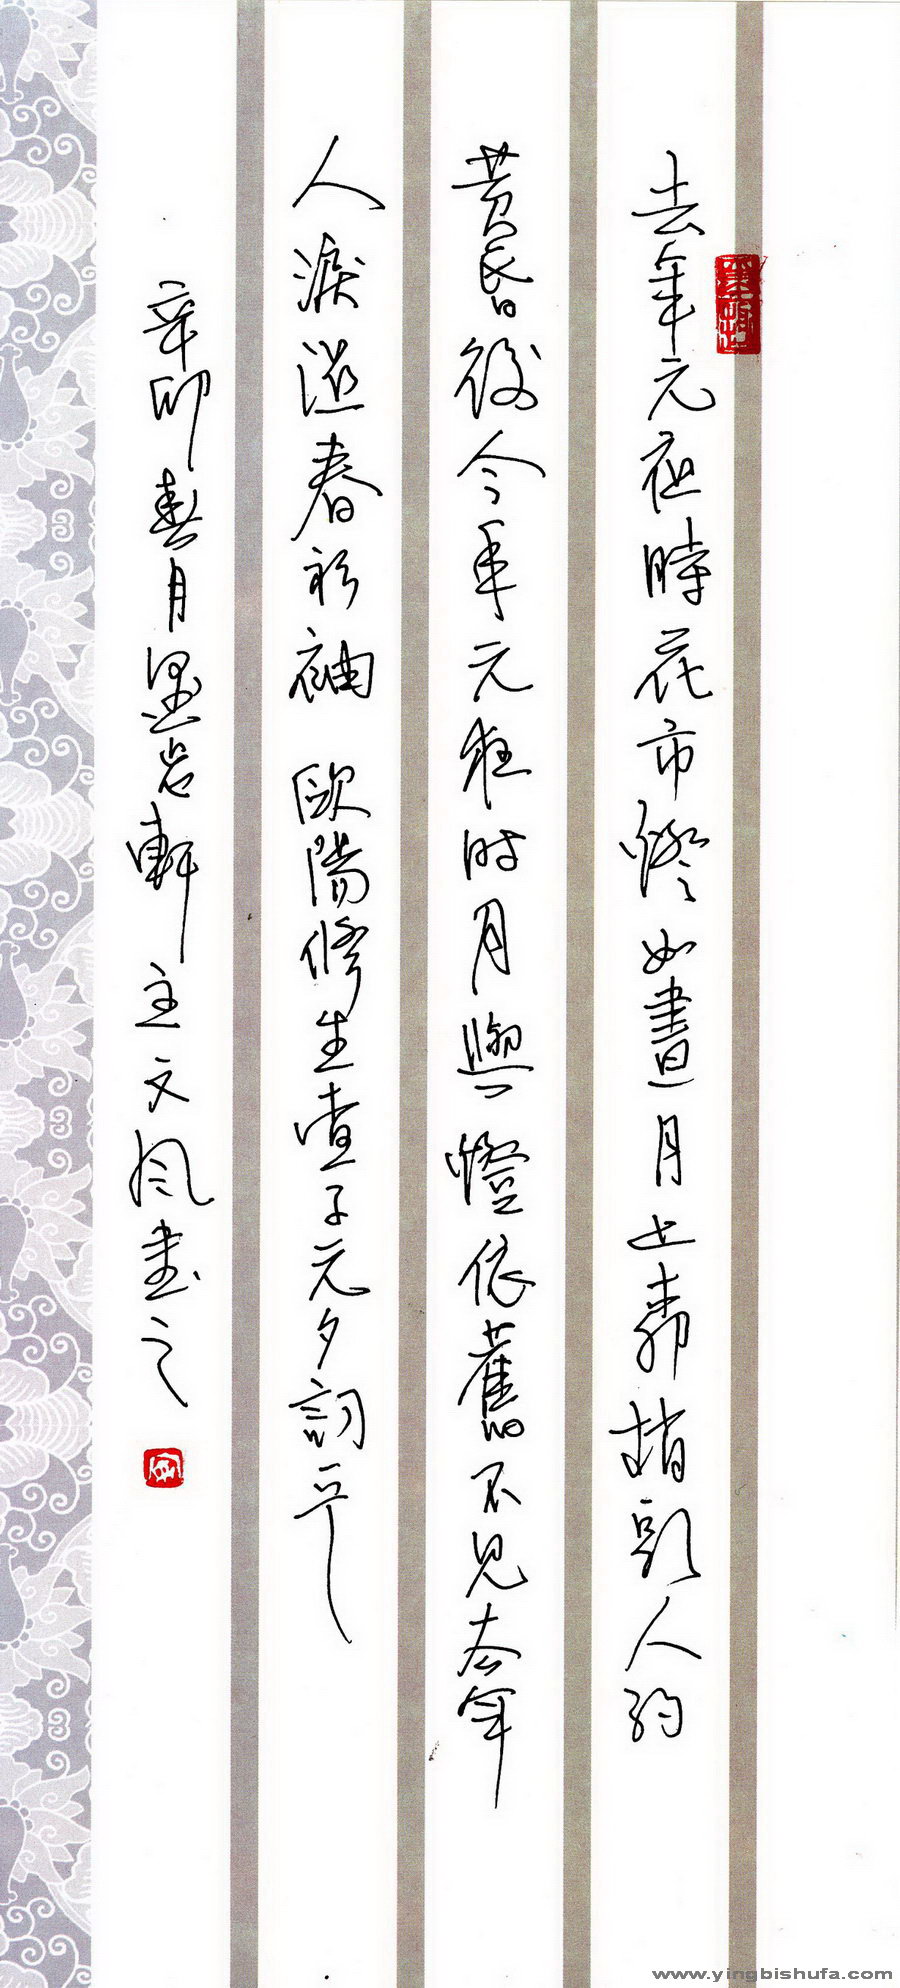 去年元夜時花市燈如晝月上柳梢頭人約
黄昏後今年元夜时月與燈依舊不見去年
人淚溼春衫袖 歐陽修生查子元夕詞
辛卯春月墨岩軒主文风書之
www.yingbishufa.com